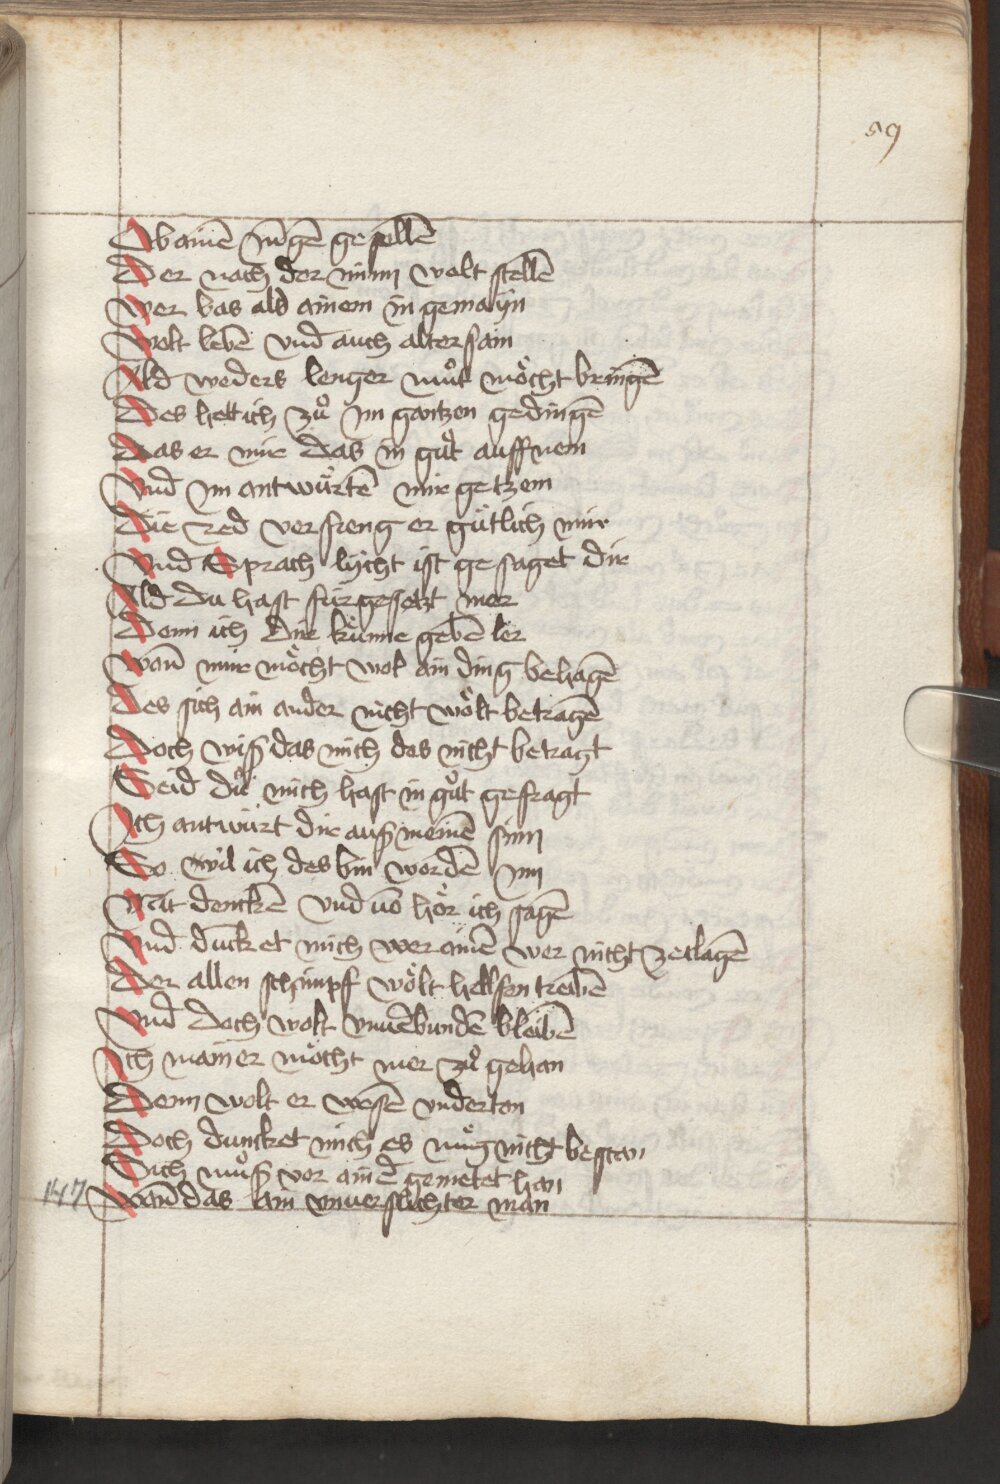 99
Ob ainē Jūgē gesellē
Der nach der minn wolt stellē
Wer bas ald ainem in gemayn
Wolt lebē vnd auch altersain
Ald weders lenger můt möcht bringē
Des hett ich zů Im gantzen gedingē
Das er mir das in gůt auffnem
Vnd Im antwürtē mir getzem
Die red verfieng er gütlich mir
Vnd Sprach lycht ist gesaget dir
Ald du hast fürgesetzt mer
Denn ich dir künne gebē ler
Wan̄ mir möcht wol ain ding behagē
Des sich ain ander nicht wölt betragē
Doch wiß das mich des nicht betragt
Seid du mich hast in gůt gefragt
Ich antwürt dir auß meinē sinn
So wil ich des bin wordē Inn
Mit denckē vnd vō hör ich sagē
Vnd duncket mich wer ainē wer nicht ze clagē
Der allen schimpf wölt helffen treibē
Vnd doch wolt vnuerbundē bleibē
Ich main er möcht mer zů gehan
Denn wolt er wesē vnderton
Doch duncket mich es müg nicht bestan
Sich můß vor ainē gemetet han
147 Wan̄ das ain vnuersůchter man